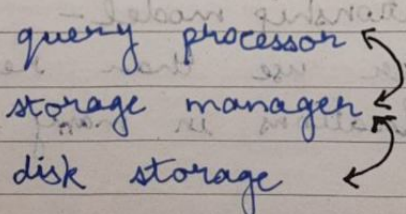 query processor
storage manager
disk storage